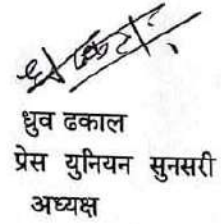 ध्रुव ढकाल
प्रेस युनियन सुनसरी
अध्यक्ष